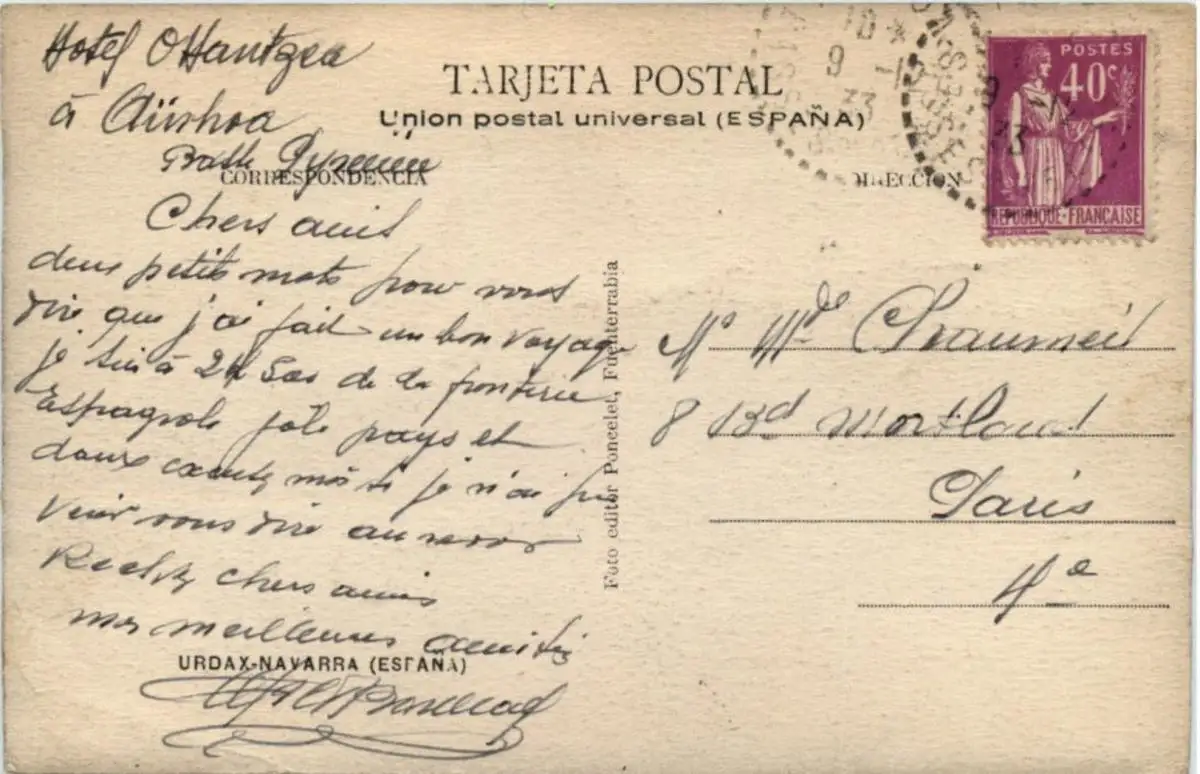 Hotel OHantzea
à Aïnhoa
Bass Pyrenées
TARJETA POSTAL
Union postal universal (ESPAÑA)
CORRESPONDENCIA
DIRECCION
POSTES
40c
REPUBLIQUE·FRANÇAISE
9 -12
33
Chers amis
deux petits mots pour vous
dire que j'ai fait un bon voyage
je suis à 2 de la frontiere
Espagnole joli pays et
doux excusez moi si je n'ai pu
venir vous dire au revoir
Recevez chers amis
mes meilleures amitiés
URDAX-NAVARRA (ESPAÑA)
Foto editor Poncelet, Fuenterrabia
Mr Mde Chaumeil
8 Bd Morland
Paris
4e